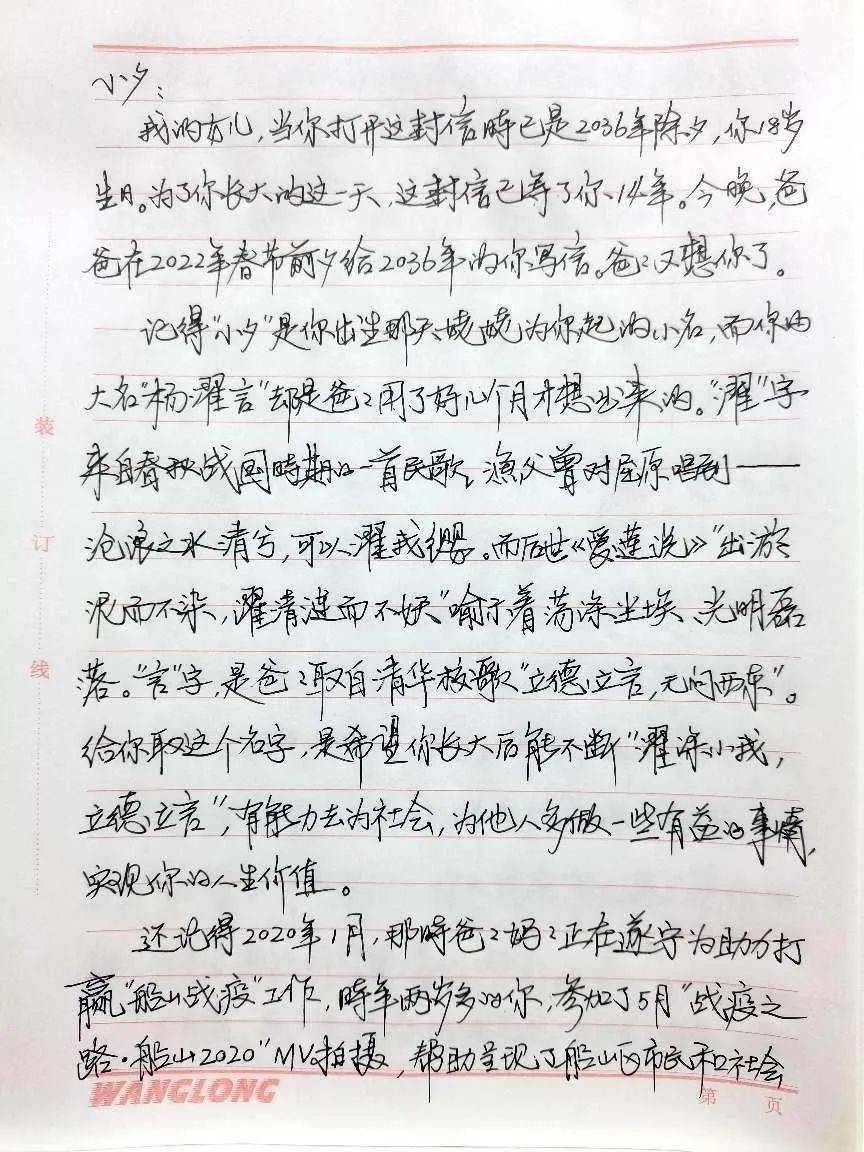 小夕：
我的女儿，当你打开这封信時已是2036年除夕，你18岁
生日。为了你长大的这一天，这封信已等了你14年。今晚，爸
爸在2022年春节前夕给2036年的你写信。爸爸又想你了。
记得“小夕”是你出生那天姥姥为你起的小名，而你的
大名“杨濯言”却是爸爸用了好几个月才想出来的。“濯”字
来自春秋战国時期的一首民歌，漁父曾对屈原唱到——
沧浪之水清兮，可以濯我缨。而后世《爱莲说》“出淤
泥而不染，濯清涟而不妖”喻示着荡涤尘埃、光明磊
落。“言”字，是爸爸取自清华校歌“立德立言，无问西东”。
给你取这个名字，是希望你长大后能不断“濯涤小我，
立德立言”，有能力去为社会，为他人多做一些有益的事情，
实现你的人生价值。
还记得2020年1月，那時爸爸妈妈正在遂宁为助力打
赢“船山战疫”工作，時年两岁多的你，参加了5月“战疫之
路·船山2020”MV拍摄，帮助呈现了船山区市民和社会
装
订
线
WANGLONG
第 页